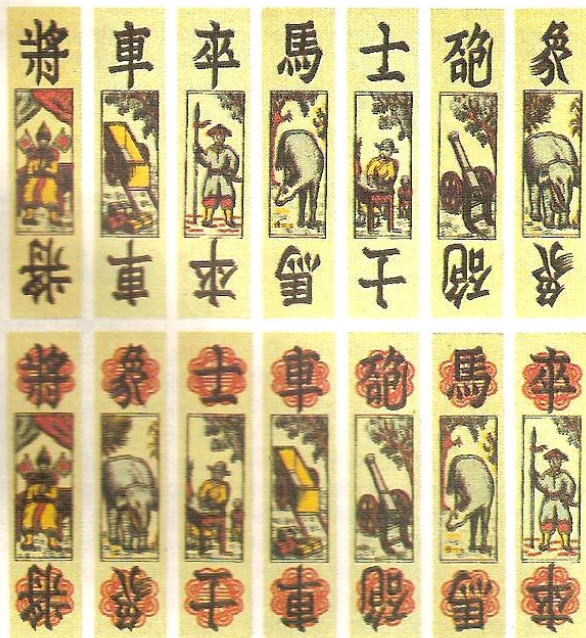 將 車 卒 馬 士 砲 象
將 車 卒 馬 士 砲 象
將 象 士 車 砲 馬 卒
將 象 士 車 砲 馬 卒